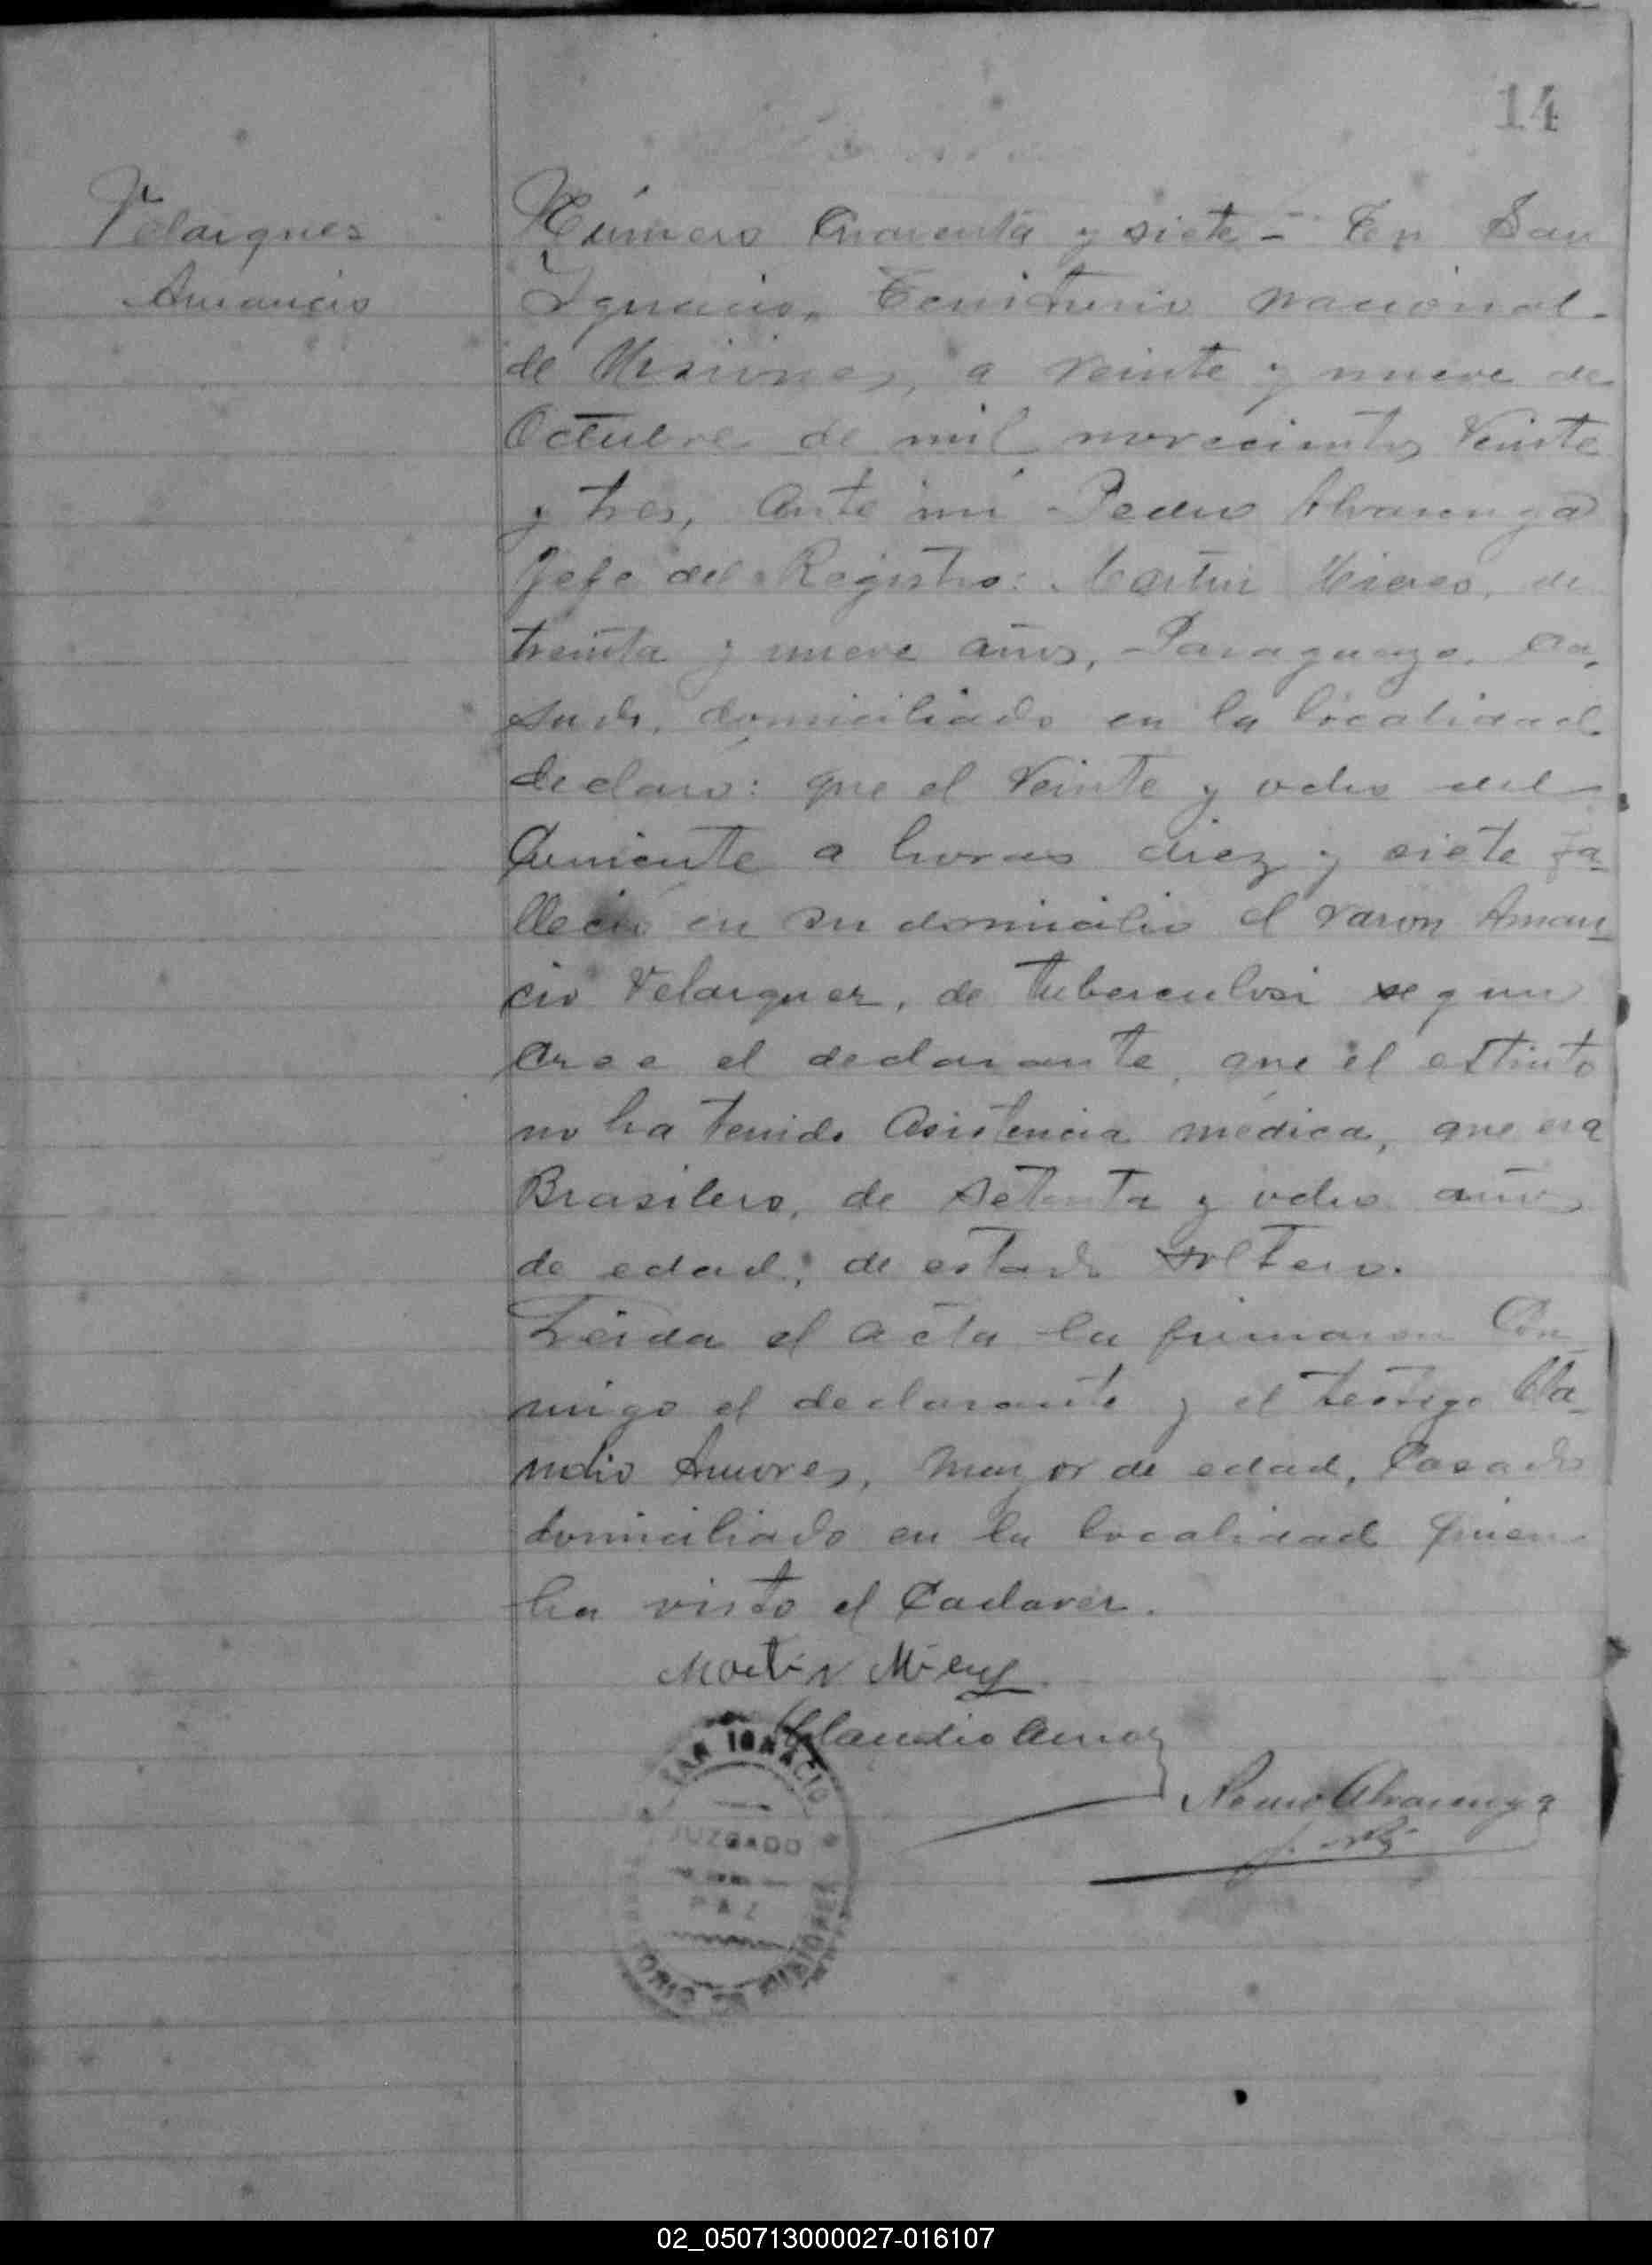 14
Velasques
Amancio
Número Cuarenta y siete - En San
Ignacio, Territorio Nacional
de Misiones, a veinte y nueve de
Octubre de mil novecientos veinte
y tres, Ante mí Pedro Alvarenga
Jefe del Registro: Martin Mieres, de
treinta y nueve años, Paraguayo, ca-
sado, domiciliado en la localidad
declaró: que el veinte y ocho del
Corriente a horas diez y siete fa-
lleció en su domicilio el varon Aman-
cio Velasquez, de tuberculosi segun
cree el declarante, que el estinto
no ha tenido asistencia médica, que era
Brasilero, de setenta y ocho años
de edad, de estado soltero.
Leida el acta la firmaron Con
migo el declarante y el testigo Cla-
udio Amores, mayor de edad, Casado
domiciliado en la localidad quien
ha visto el Cadaver.
Martin
Claudio
Alvarenga
SAN IGNACIO
JUZGADO
PAZ
TERRITORIO DE MISIONES
02_050713000027-016107